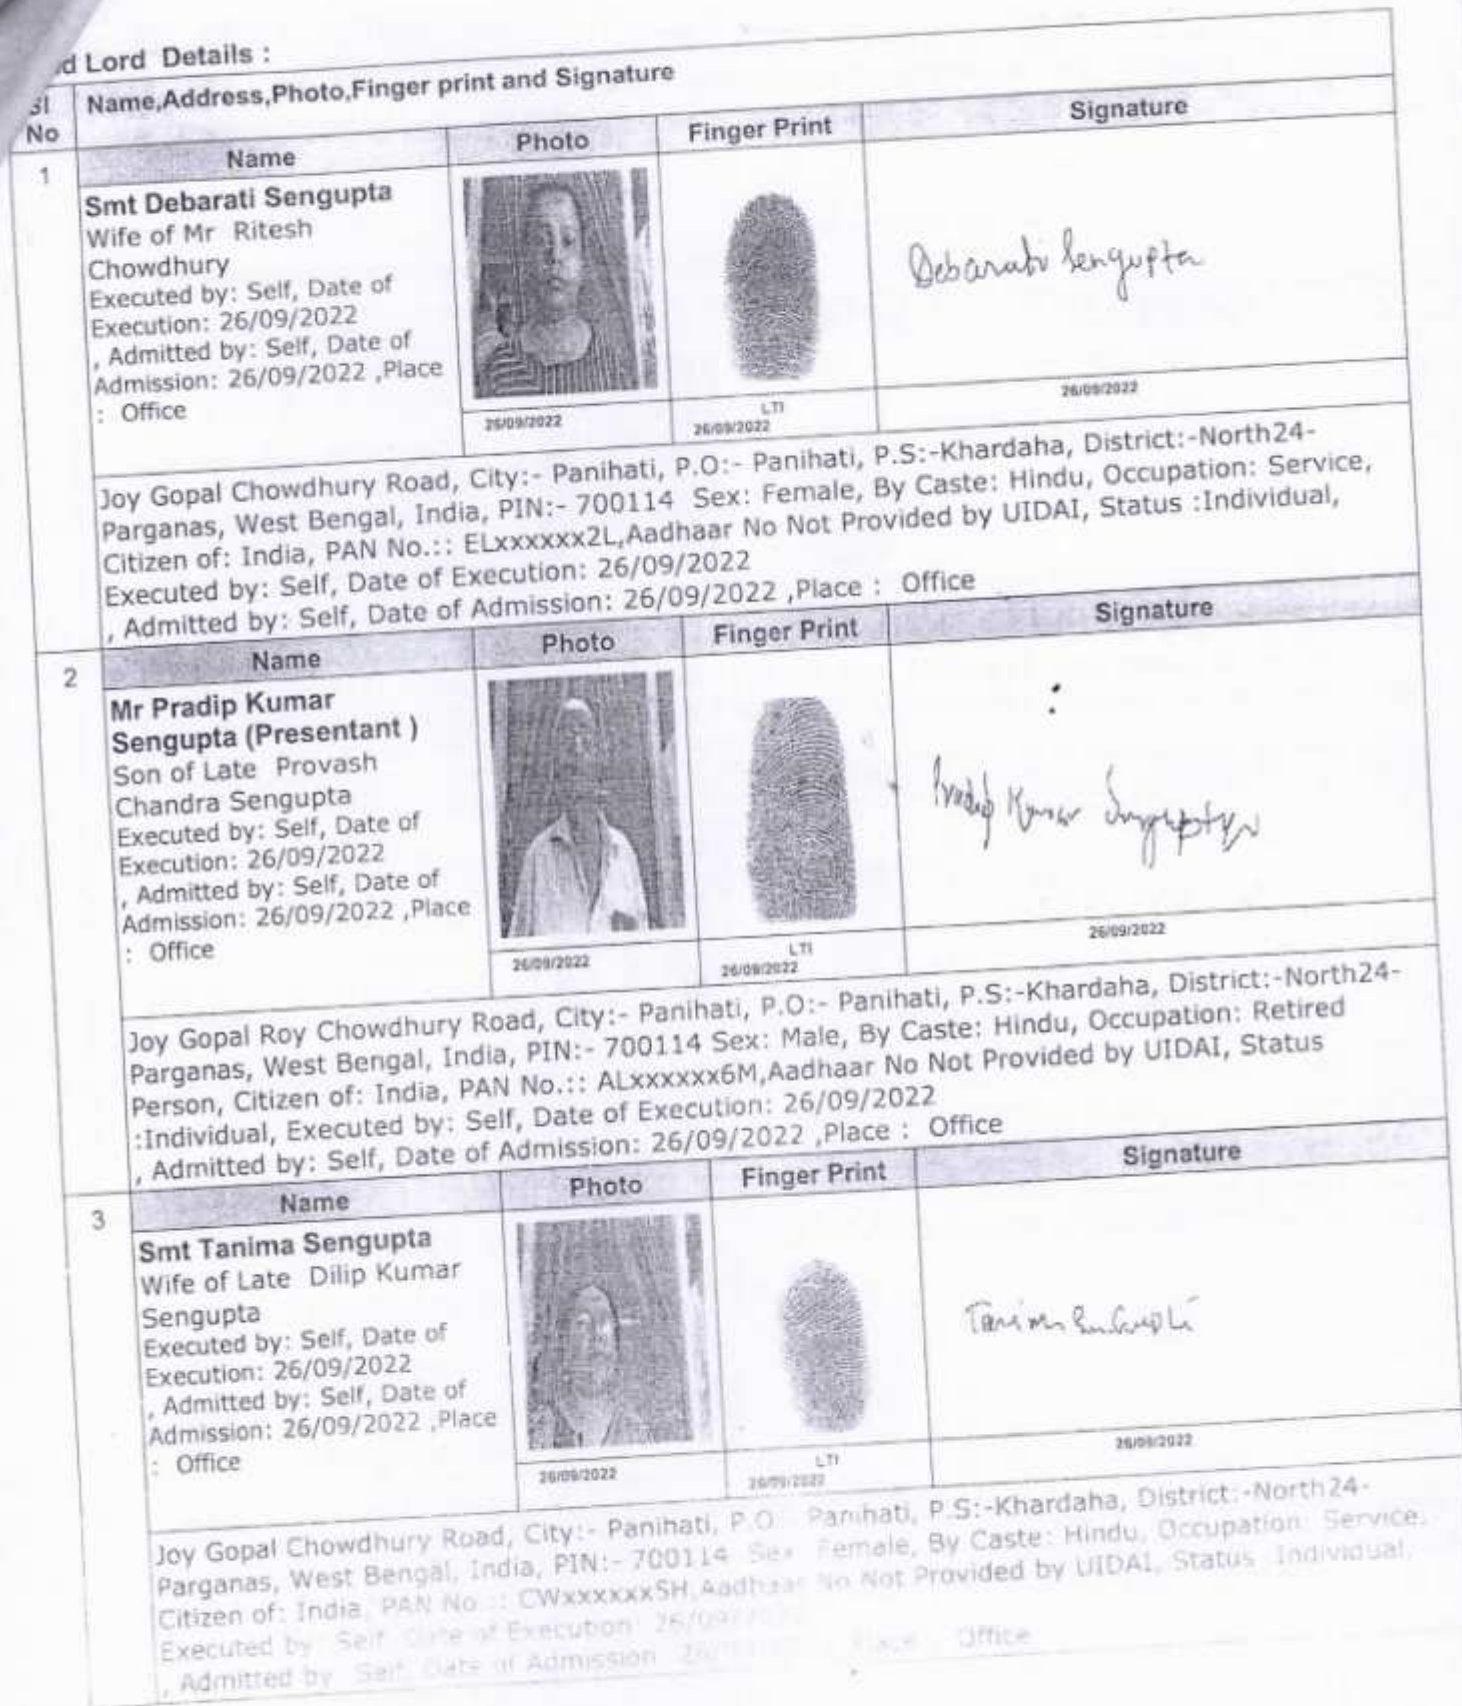 d Lord Details :
Sl No
Name,Address,Photo,Finger print and Signature
Name Photo Finger Print Signature
1
Smt Debarati Sengupta
Wife of Mr Ritesh
Chowdhury
Executed by: Self, Date of
Execution: 26/09/2022
, Admitted by: Self, Date of
Admission: 26/09/2022 ,Place
: Office
Debarati Sengupta
26/09/2022
LTI
26/09/2022
26/09/2022
Joy Gopal Chowdhury Road, City:- Panihati, P.O:- Panihati, P.S:-Khardaha, District:-North24-
Parganas, West Bengal, India, PIN:- 700114 Sex: Female, By Caste: Hindu, Occupation: Service,
Citizen of: India, PAN No.:: ELxxxxxx2L,Aadhaar No Not Provided by UIDAI, Status :Individual,
Executed by: Self, Date of Execution: 26/09/2022
, Admitted by: Self, Date of Admission: 26/09/2022 ,Place : Office
Name Photo Finger Print Signature
2
Mr Pradip Kumar
Sengupta (Presentant )
Son of Late Provash
Chandra Sengupta
Executed by: Self, Date of
Execution: 26/09/2022
, Admitted by: Self, Date of
Admission: 26/09/2022 ,Place
: Office
Pradip Kumar Sengupta
26/09/2022
LTI
26/09/2022
26/09/2022
Joy Gopal Roy Chowdhury Road, City:- Panihati, P.O:- Panihati, P.S:-Khardaha, District:-North24-
Parganas, West Bengal, India, PIN:- 700114 Sex: Male, By Caste: Hindu, Occupation: Retired
Person, Citizen of: India, PAN No.:: ALxxxxxx6M,Aadhaar No Not Provided by UIDAI, Status
:Individual, Executed by: Self, Date of Execution: 26/09/2022
, Admitted by: Self, Date of Admission: 26/09/2022 ,Place : Office
Name Photo Finger Print Signature
3
Smt Tanima Sengupta
Wife of Late Dilip Kumar
Sengupta
Executed by: Self, Date of
Execution: 26/09/2022
, Admitted by: Self, Date of
Admission: 26/09/2022 ,Place
: Office
26/09/2022
LTI
26/09/2022
26/09/2022
Joy Gopal Chowdhury Road, City:- Panihati, P.O Panihati, P.S:-Khardaha, District:-North24-
Parganas, West Bengal, India, PIN:- 700114 Sex Female, By Caste: Hindu, Occupation: Service,
Citizen of: India, PAN No.:: CWxxxxxx5H,Aadhaar No Not Provided by UIDAI, Status Individual,
Executed by Self, Date of Execution 26/09/
, Admitted by Self, Date of Admission Place Office